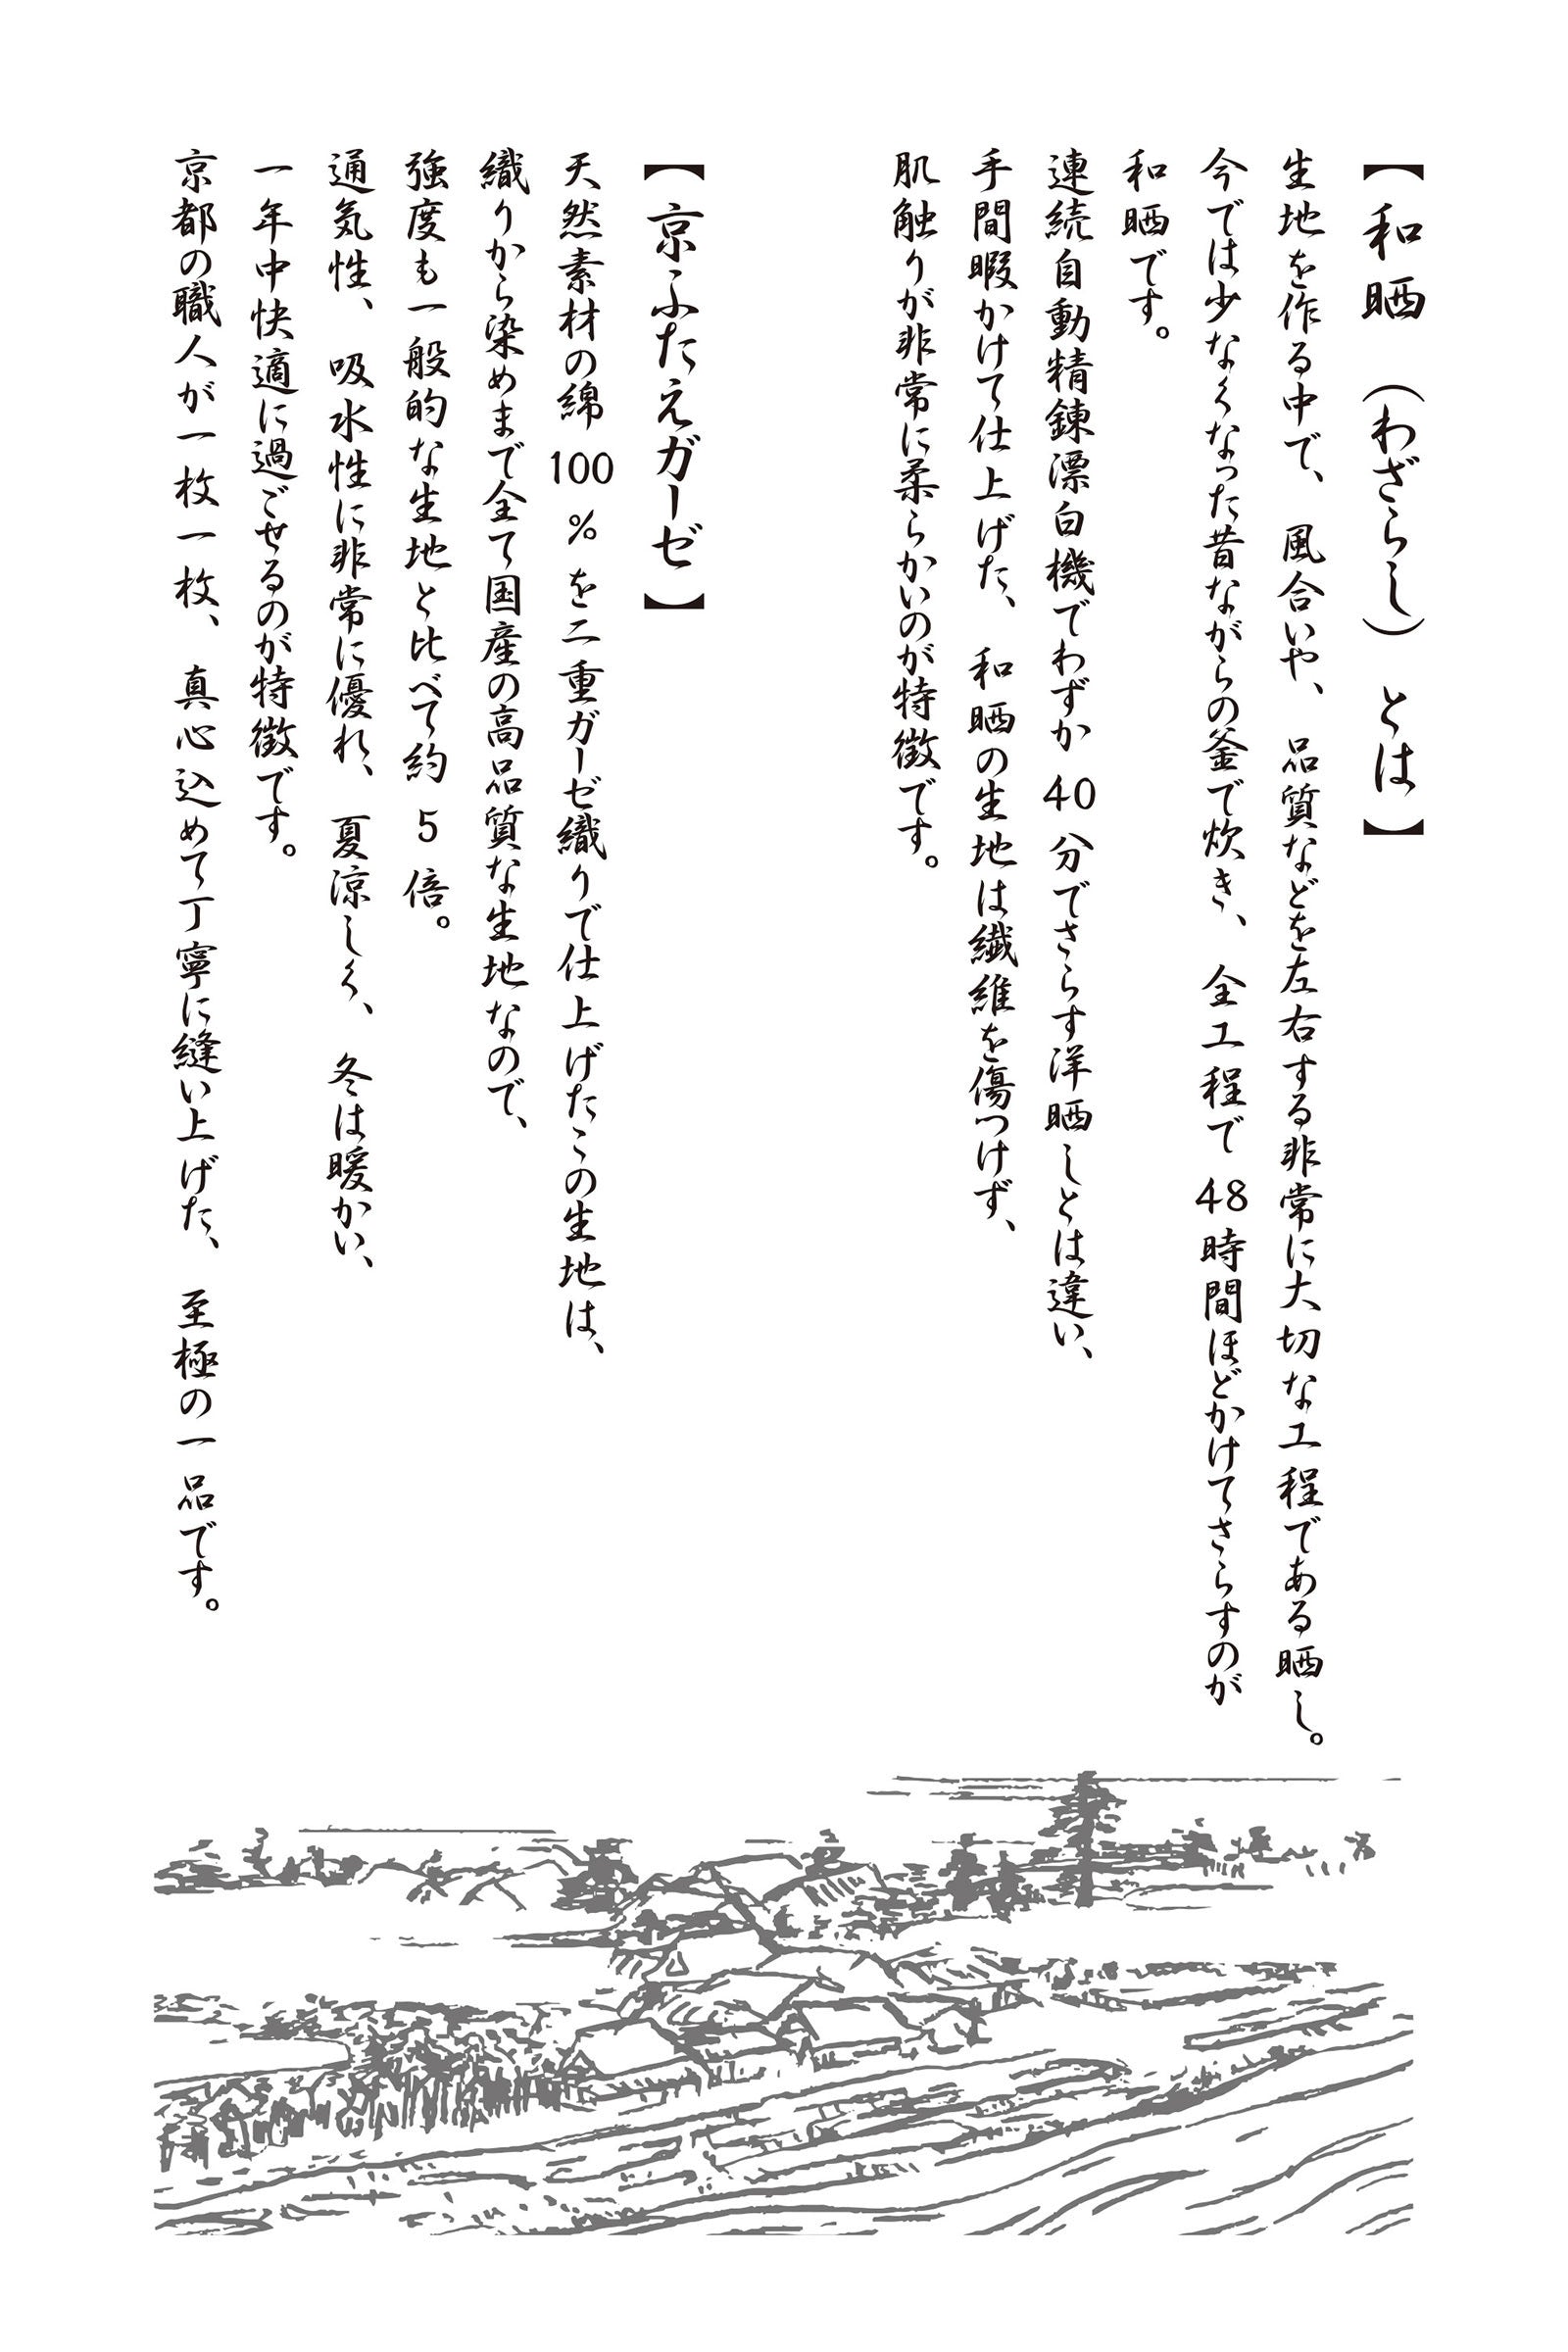 【和晒（わざらし）とは】
生地を作る中で、風合いや、品質などを左右する非常に大切な工程である晒し。
今では少なくなった昔ながらの釜で炊き、全工程で48時間ほどかけてさらすのが
和晒です。
連続自動精錬漂白機でわずか40分でさらす洋晒しとは違い、
手間暇かけて仕上げた、和晒の生地は繊維を傷つけず、
肌触りが非常に柔らかいのが特徴です。
【京ふたえガーゼ】
天然素材の綿100％を二重ガーゼ織りで仕上げたこの生地は、
織りから染めまで全て国産の高品質な生地なので、
強度も一般的な生地と比べて約5倍。
通気性、吸水性に非常に優れ、夏涼しく、冬は暖かい、
一年中快適に過ごせるのが特徴です。
京都の職人が一枚一枚、真心込めて丁寧に縫い上げた、至極の一品です。